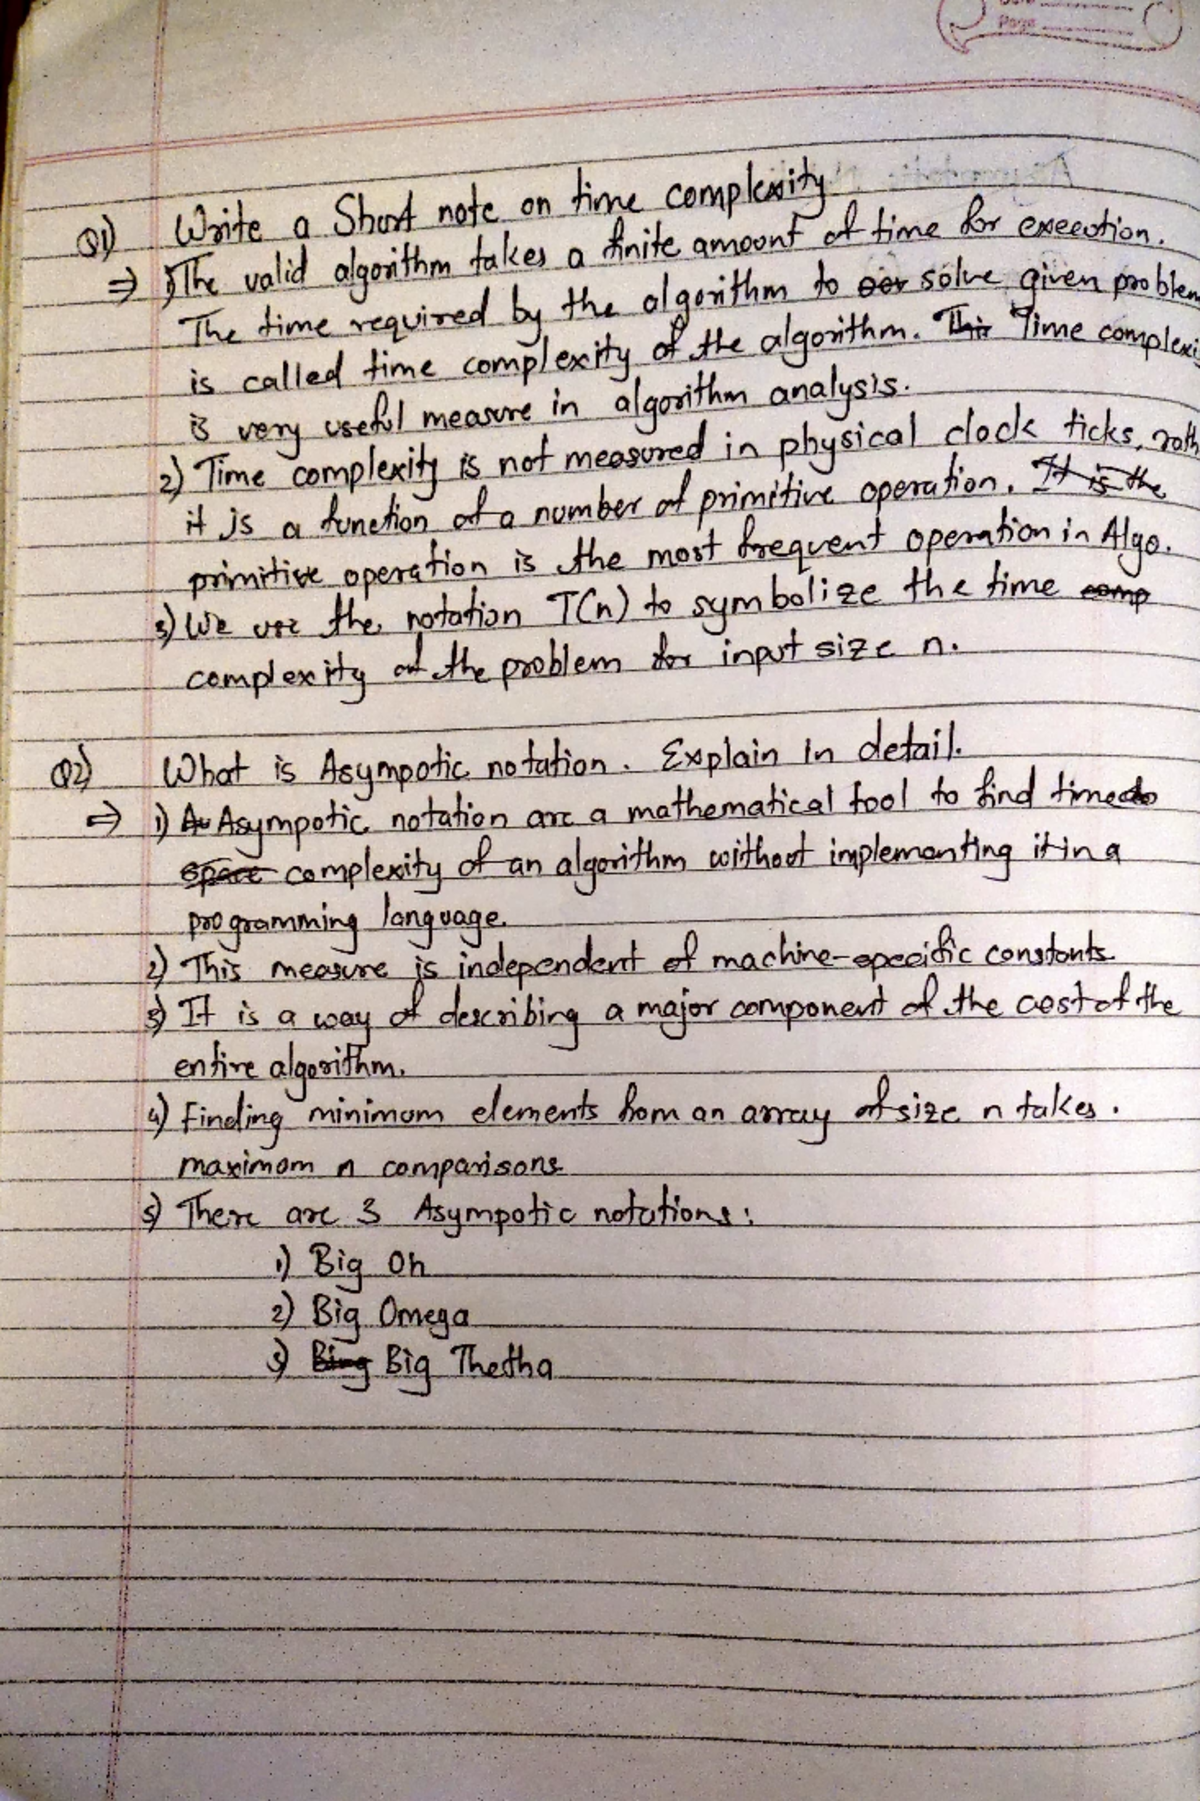 Page
Q1) Write a Short note on time complexity
⇒ 1) The valid algorithm takes a finite amount of time for execution.
The time required by the algorithm to solve given problem
is called time complexity of the algorithm. ~~This~~ Time complexi
is very useful measure in algorithm analysis.
2) Time complexity is not measured in physical clock ticks, rath
it is a function of a number of primitive operation. ~~It is the~~
primitive operation is the most frequent operation in Algo.
3) We use the notation T(n) to symbolize the time ~~comp~~
complexity of the problem for input size n.
Q2) What is Asympotic notation. Explain In detail.
⇒ 1) ~~A~~ Asympotic notation are a mathematical tool to find time
~~space~~ complexity of an algorithm without implementing it in a
programming language.
2) This measure is independent of machine-specific constants.
3) It is a way of describing a major component of the cost of the
entire algorithm.
4) Finding minimum elements from an array of size n takes.
maximum n comparisons
5) There are 3 Asympotic notations:
1) Big Oh
2) Big Omega
3) ~~Bing~~ Big Thetha